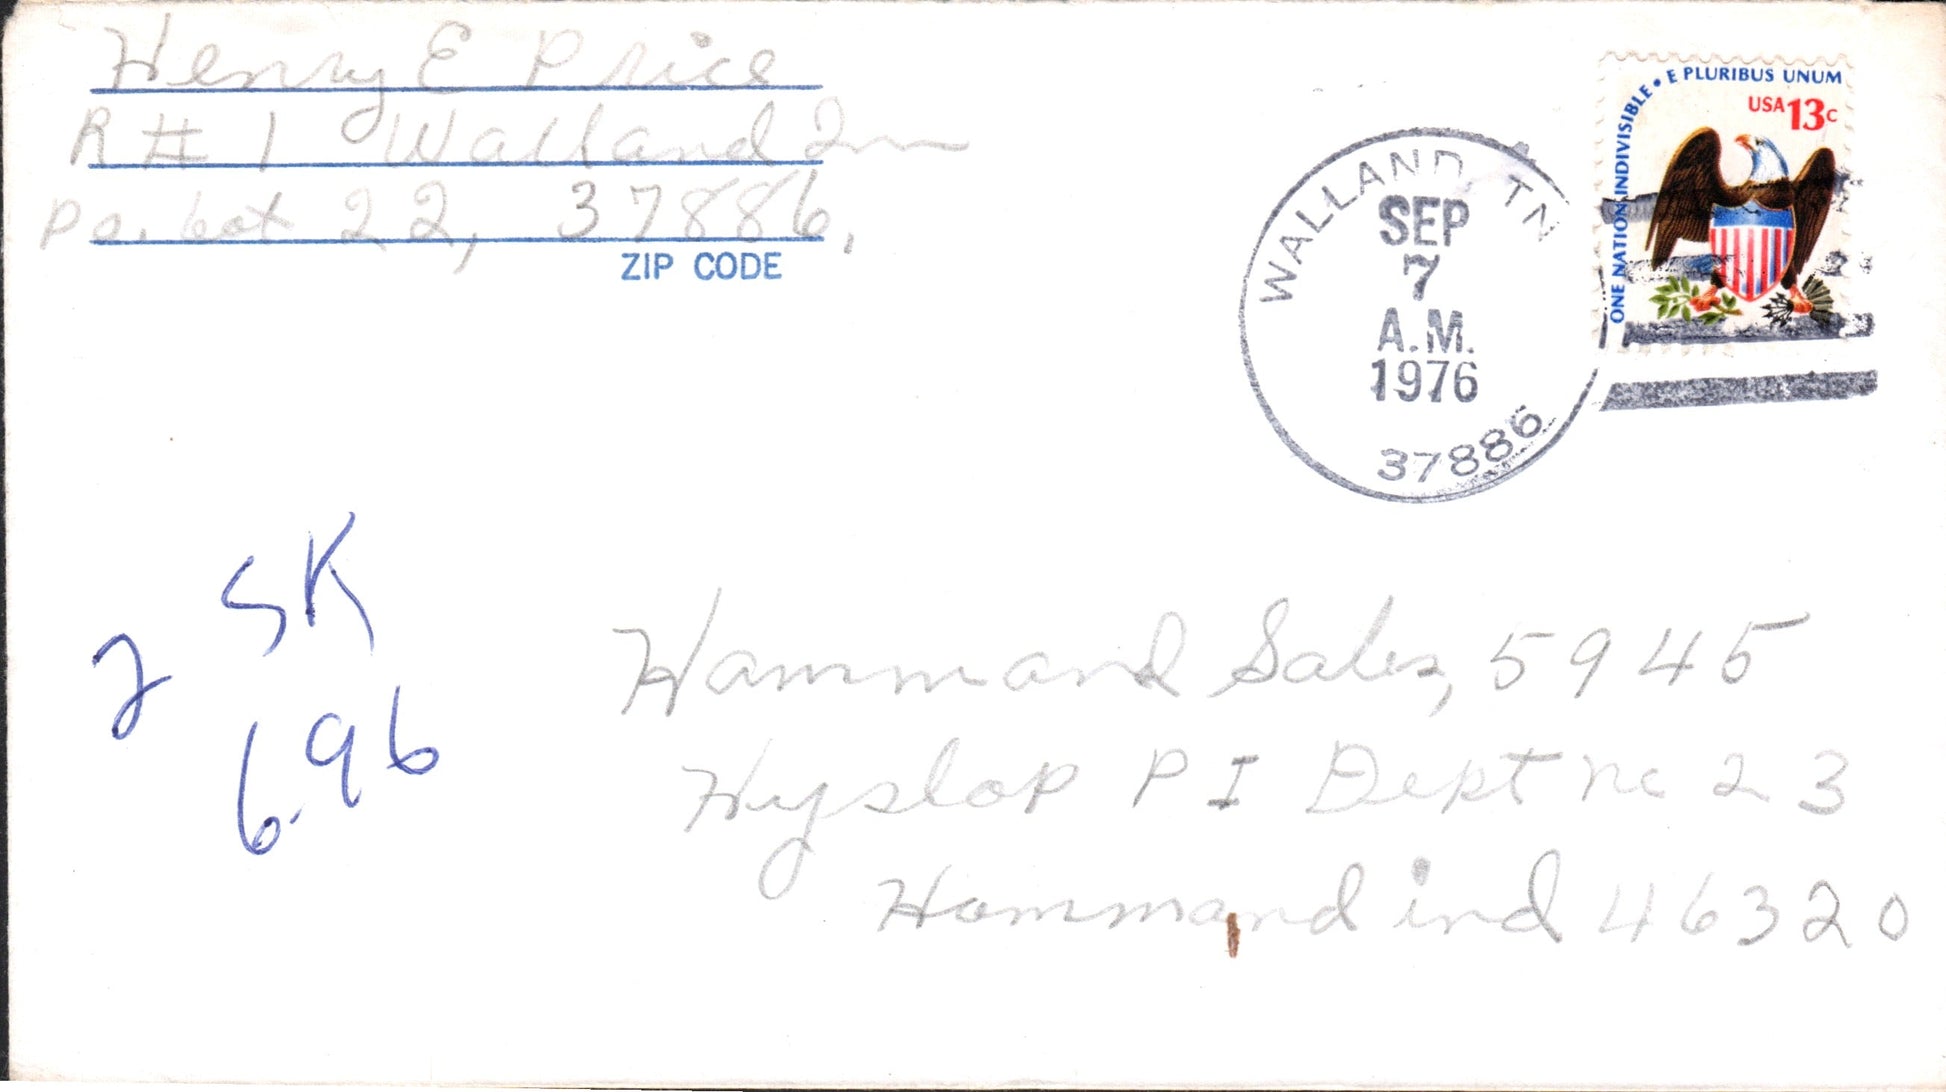 Henry E Price
R # 1 Walland Tnn
Po. box 22, 37886.
ZIP CODE
WALLAND, TN
SEP
7
A.M.
1976
37886
ONE NATION INDIVISIBLE • E PLURIBUS UNUM
USA 13c
SK
2
6.96
Hammand Sales, 5945
Hyslop P I Dept no 23
Hammand ind 46320